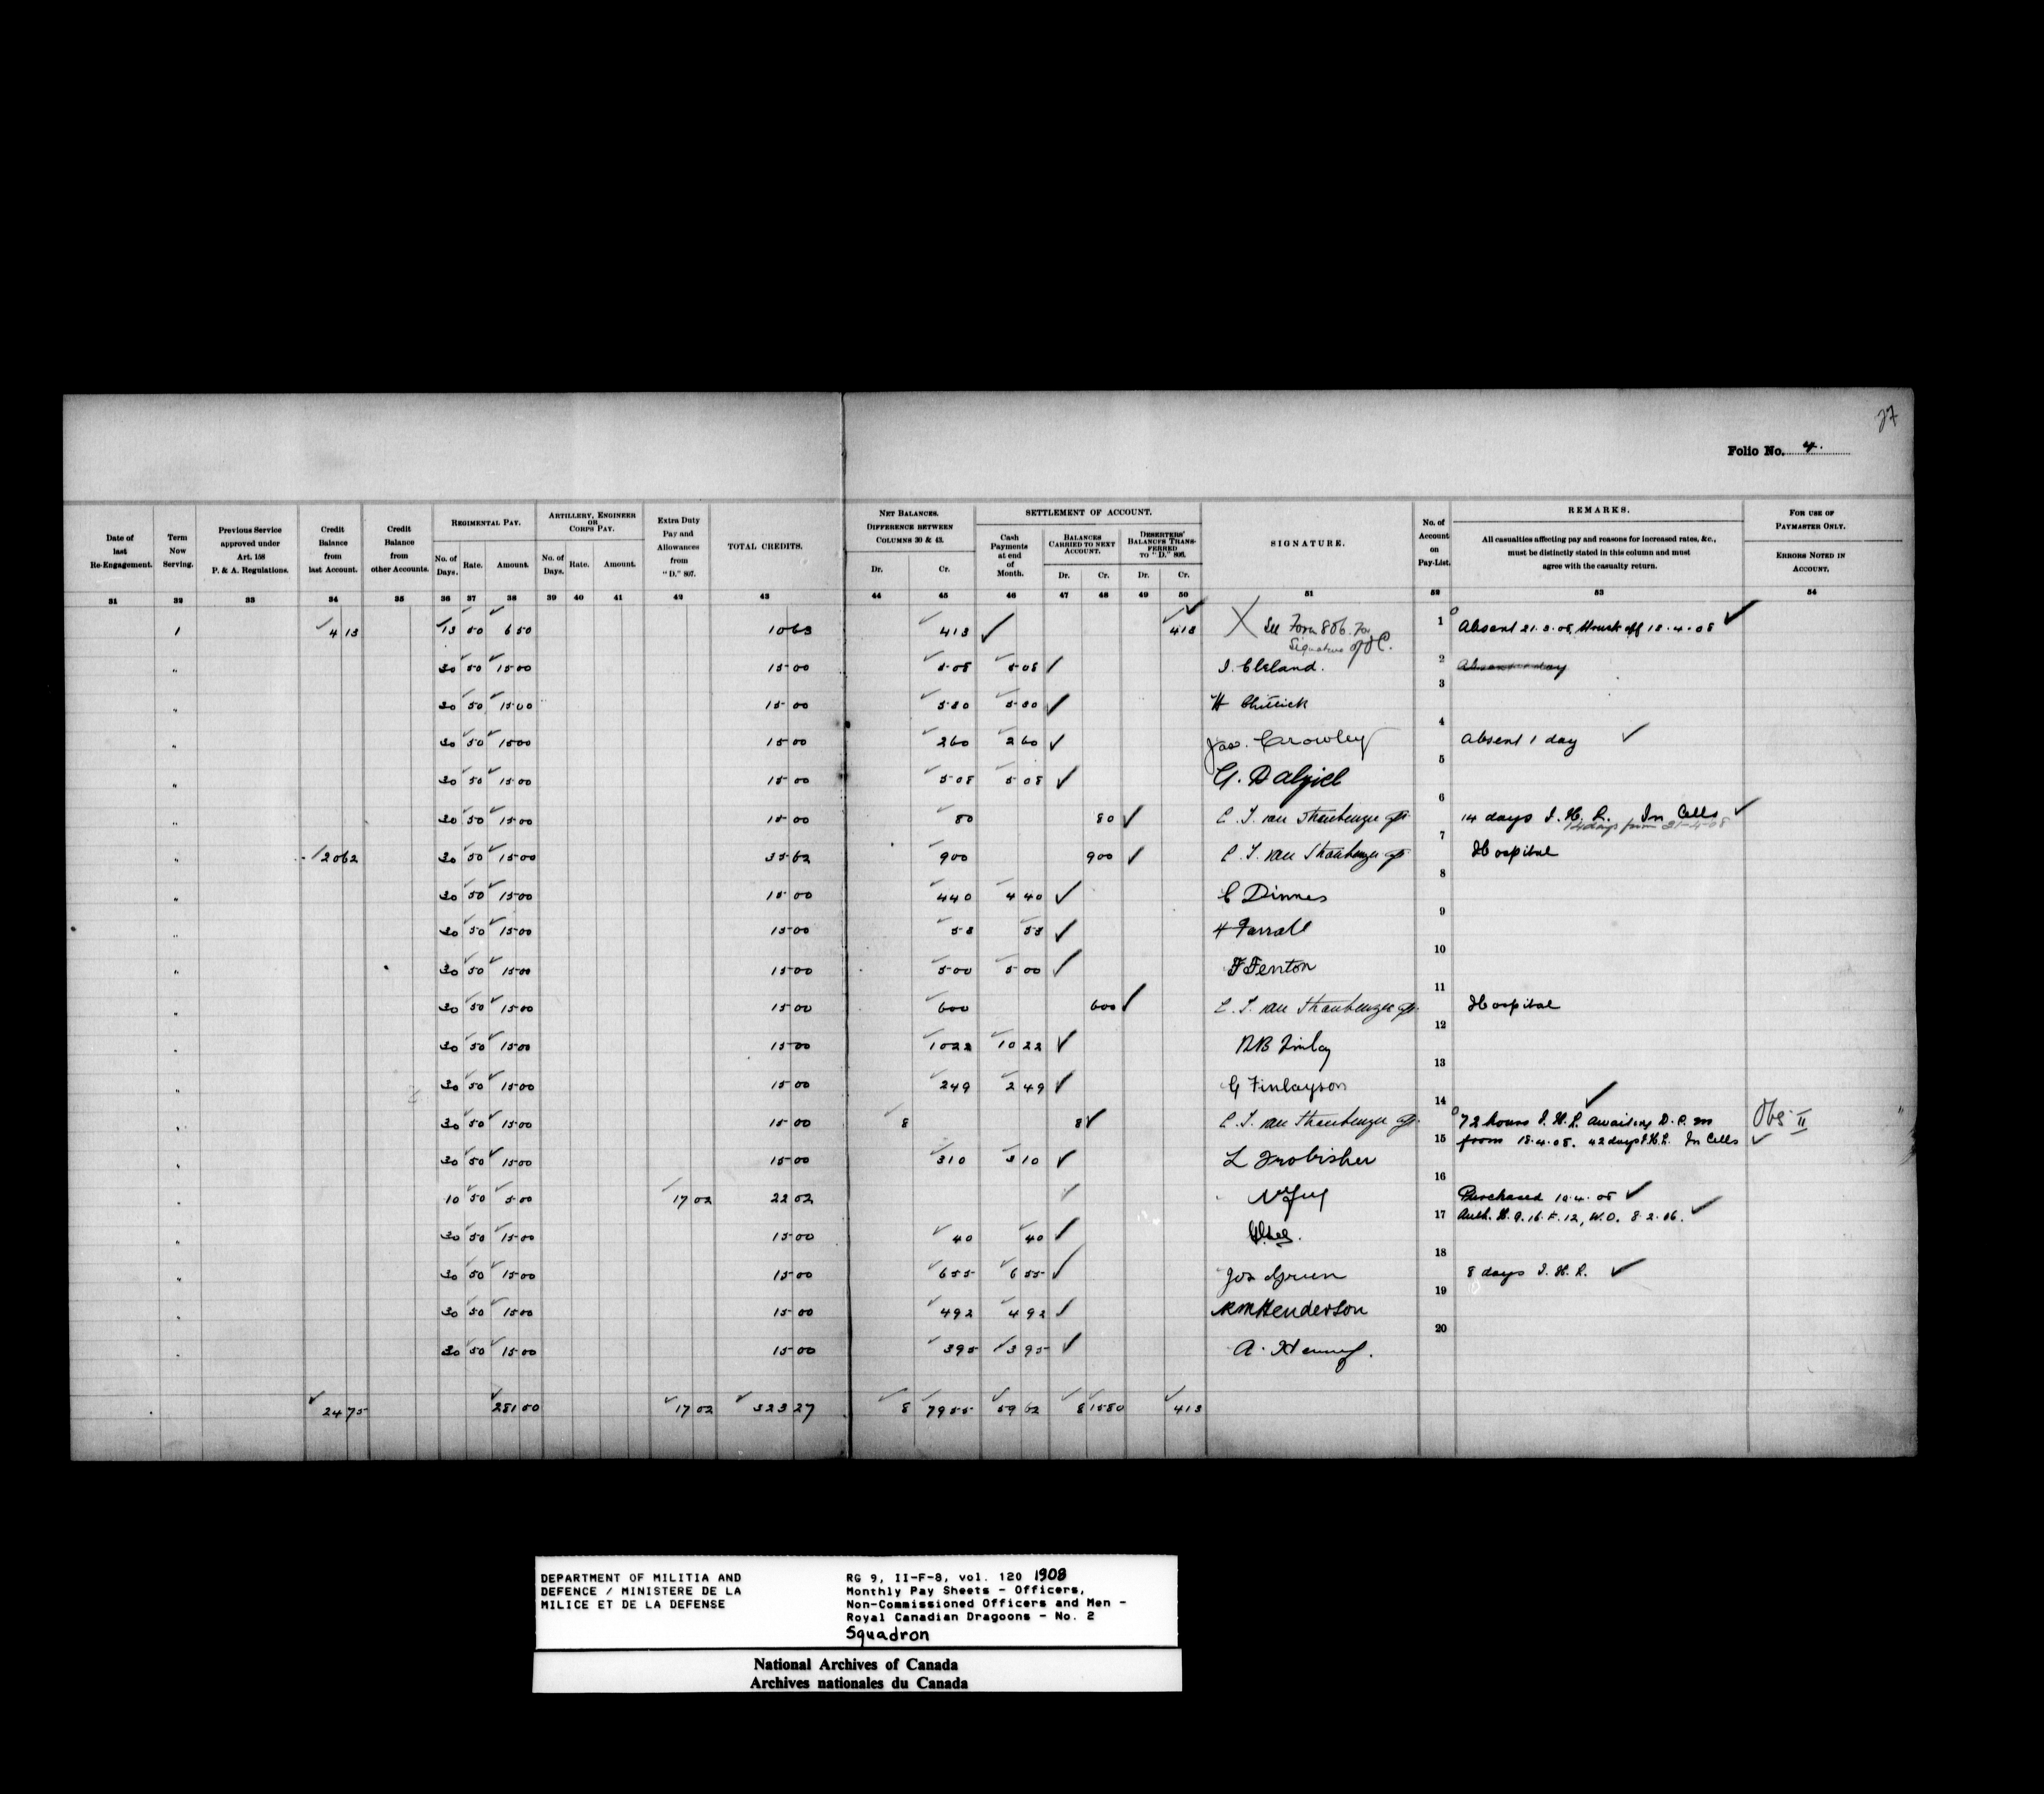 27
Folio No. 4.
Date of last Re-Engagement.
Term Now Serving.
Previous Service approved under Art. 158 P. & A. Regulations.
Credit Balance from last Account.
Credit Balance from other Accounts.
REGIMENTAL PAY.
No. of Days. Rate. Amount.
ARTILLERY, ENGINEER OR CORPS PAY.
No. of Days. Rate. Amount.
Extra Duty Pay and Allowances from "D." 807.
TOTAL CREDITS.
NET BALANCES. DIFFERENCE BETWEEN COLUMNS 30 & 43.
Dr. Cr.
SETTLEMENT OF ACCOUNT.
Cash Payments at end of Month.
BALANCES CARRIED TO NEXT ACCOUNT.
Dr. Cr.
DESERTERS' BALANCES TRANSFERRED TO "D." 806.
Dr. Cr.
SIGNATURE.
No. of Account on Pay-List.
REMARKS.
All casualties affecting pay and reasons for increased rates, &c., must be distinctly stated in this column and must agree with the casualty return.
FOR USE OF PAYMASTER ONLY.
ERRORS NOTED IN ACCOUNT.
31 32 33 34 35 36 37 38 39 40 41 42 43 44 45 46 47 48 49 50 51 52 53 54
1 4 13 13 50 6 50 10 63 4 13 4 13 X See Form 806 for Signature of 1 Absent 21.3.08, Struck off 13.4.08
" 30 50 15 00 15 00 5 08 5 08 J. Cleland. 2 Absent 1 day
" 30 50 15 00 15 00 5 80 5 80 H Chittick 3
" 30 50 15 00 15 00 2 60 2 60 Jas. Crowley 4 Absent 1 day
" 30 50 15 00 15 00 5 08 5 08 G. Dalziel 5
" 30 50 15 00 15 00 80 80 C. T. van Straubenzee 6 14 days I. H. L. In Cells
14 days from 21-4-08
" 20 62 30 50 15 00 35 62 9 00 9 00 C. T. van Straubenzee 7 Hospital
" 30 50 15 00 15 00 4 40 4 40 C Dinnes 8
" 30 50 15 00 15 00 58 58 H Farrall 9
" 30 50 15 00 15 00 5 00 5 00 F Fenton 10
" 30 50 15 00 15 00 6 00 6 00 C. T. van Straubenzee 11 Hospital
" 30 50 15 00 15 00 10 22 10 22 12
" 30 50 15 00 15 00 2 49 2 49 G Finlayson 13
" 30 50 15 00 15 00 8 8 C. T. van Straubenzee 14 72 hours I. H. L. awaiting D. C. M Obs II
from 18.4.08. 42 days I.H.L. In Cells
" 30 50 15 00 15 00 3 10 3 10 L Frobisher 15
" 10 50 5 00 17 02 22 02 16 Purchased 10.4.08
Auth. H.Q. 16.F.12, W.O. 8.2.06.
" 30 50 15 00 15 00 40 40 17
" 30 50 15 00 15 00 6 55 6 55 Jos Green 18 8 days I. H. L.
" 30 50 15 00 15 00 4 92 4 92 RM Henderson 19
" 30 50 15 00 15 00 3 95 3 95 A. Henry. 20
24 75 281 50 17 02 323 27 8 79 55 59 62 8 15 80 4 13
DEPARTMENT OF MILITIA AND
DEFENCE / MINISTERE DE LA
MILICE ET DE LA DEFENSE
RG 9, II-F-8, vol. 120 1908
Monthly Pay Sheets - Officers,
Non-Commissioned Officers and Men -
Royal Canadian Dragoons - No. 2
Squadron
National Archives of Canada
Archives nationales du Canada